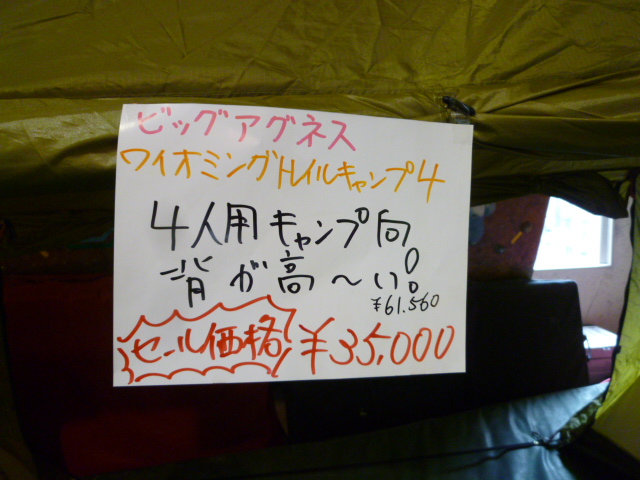 ビッグアグネス
ワイオミングトレイルキャンプ4
4人用キャンプ向
背が高〜い!
¥61.560
セール価格 ¥35,000